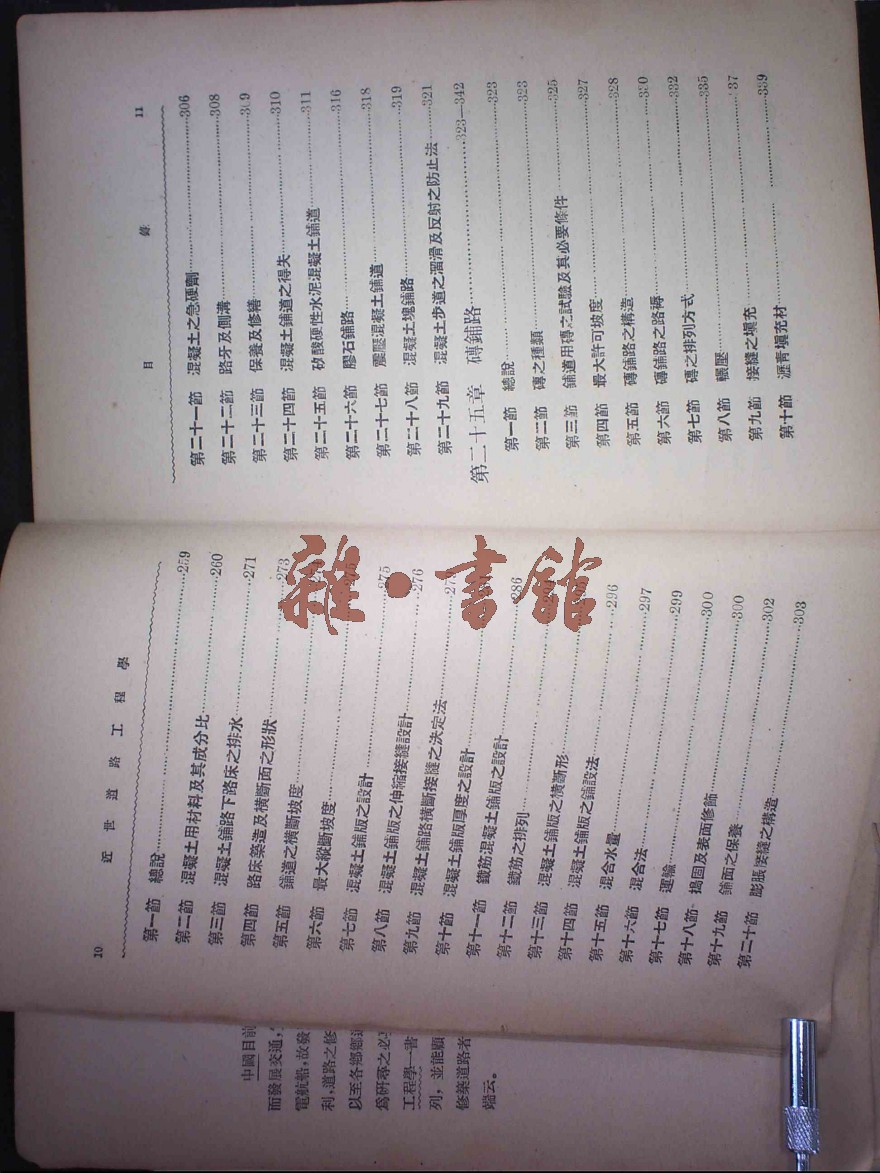 10
近世道路工程學
第一節 總說……259
第二節 混凝土用材料及其成分比……260
第三節 混凝土鋪路下路床之排水……271
第四節 路床築造及橫斷面之形狀……273
第五節 鋪道之橫斷坡度
第六節 最大縱斷坡度
第七節 混凝土鋪版之設計……275
第八節 混凝土鋪版之伸縮接縫設計……276
第九節 混凝土鋪路橫斷接縫之決定法
第十節 混凝土鋪版厚度之設計
第十一節 鐵筋混凝土鋪版之設計……286
第十二節 鐵筋之排列
第十三節 混凝土鋪版之橫斷形
第十四節 混凝土鋪版之鋪設法……296
第十五節 混合水量……297
第十六節 混合法……299
第十七節 運輸……300
第十八節 搗固及表面修飾……300
第十九節 鋪面之保養……302
第二十節 膨脹接縫之構造……303
目錄
11
第二十一節 混凝土之急硬劑……306
第二十二節 路牙及側溝……308
第二十三節 保養及修繕……309
第二十四節 混凝土鋪道之得失……310
第二十五節 矽酸硬性水泥混凝土鋪道……311
第二十六節 膠石鋪路……316
第二十七節 震壓混凝土鋪道……318
第二十八節 混凝土塊鋪路……319
第二十九節 混凝土步道之溜滑及反射之防止法……321
第二十五章 磚鋪路……323—342
第一節 總說……323
第二節 磚之種類……323
第三節 鋪道用磚之試驗及其必要條件……325
第四節 最大許可坡度……327
第五節 磚鋪路之構造……328
第六節 磚鋪路之路褥……332
第七節 磚之排列方式……335
第八節 輾壓……37
第九節 接縫之填充……339
第十節 瀝青填充材
中國目前
而發展交通,
電航船,故發
利,道路之修
以至各鄉鄉道
為研尋之必
工程學一書
列,並能顧
修築道路者
端云。
雅·書館